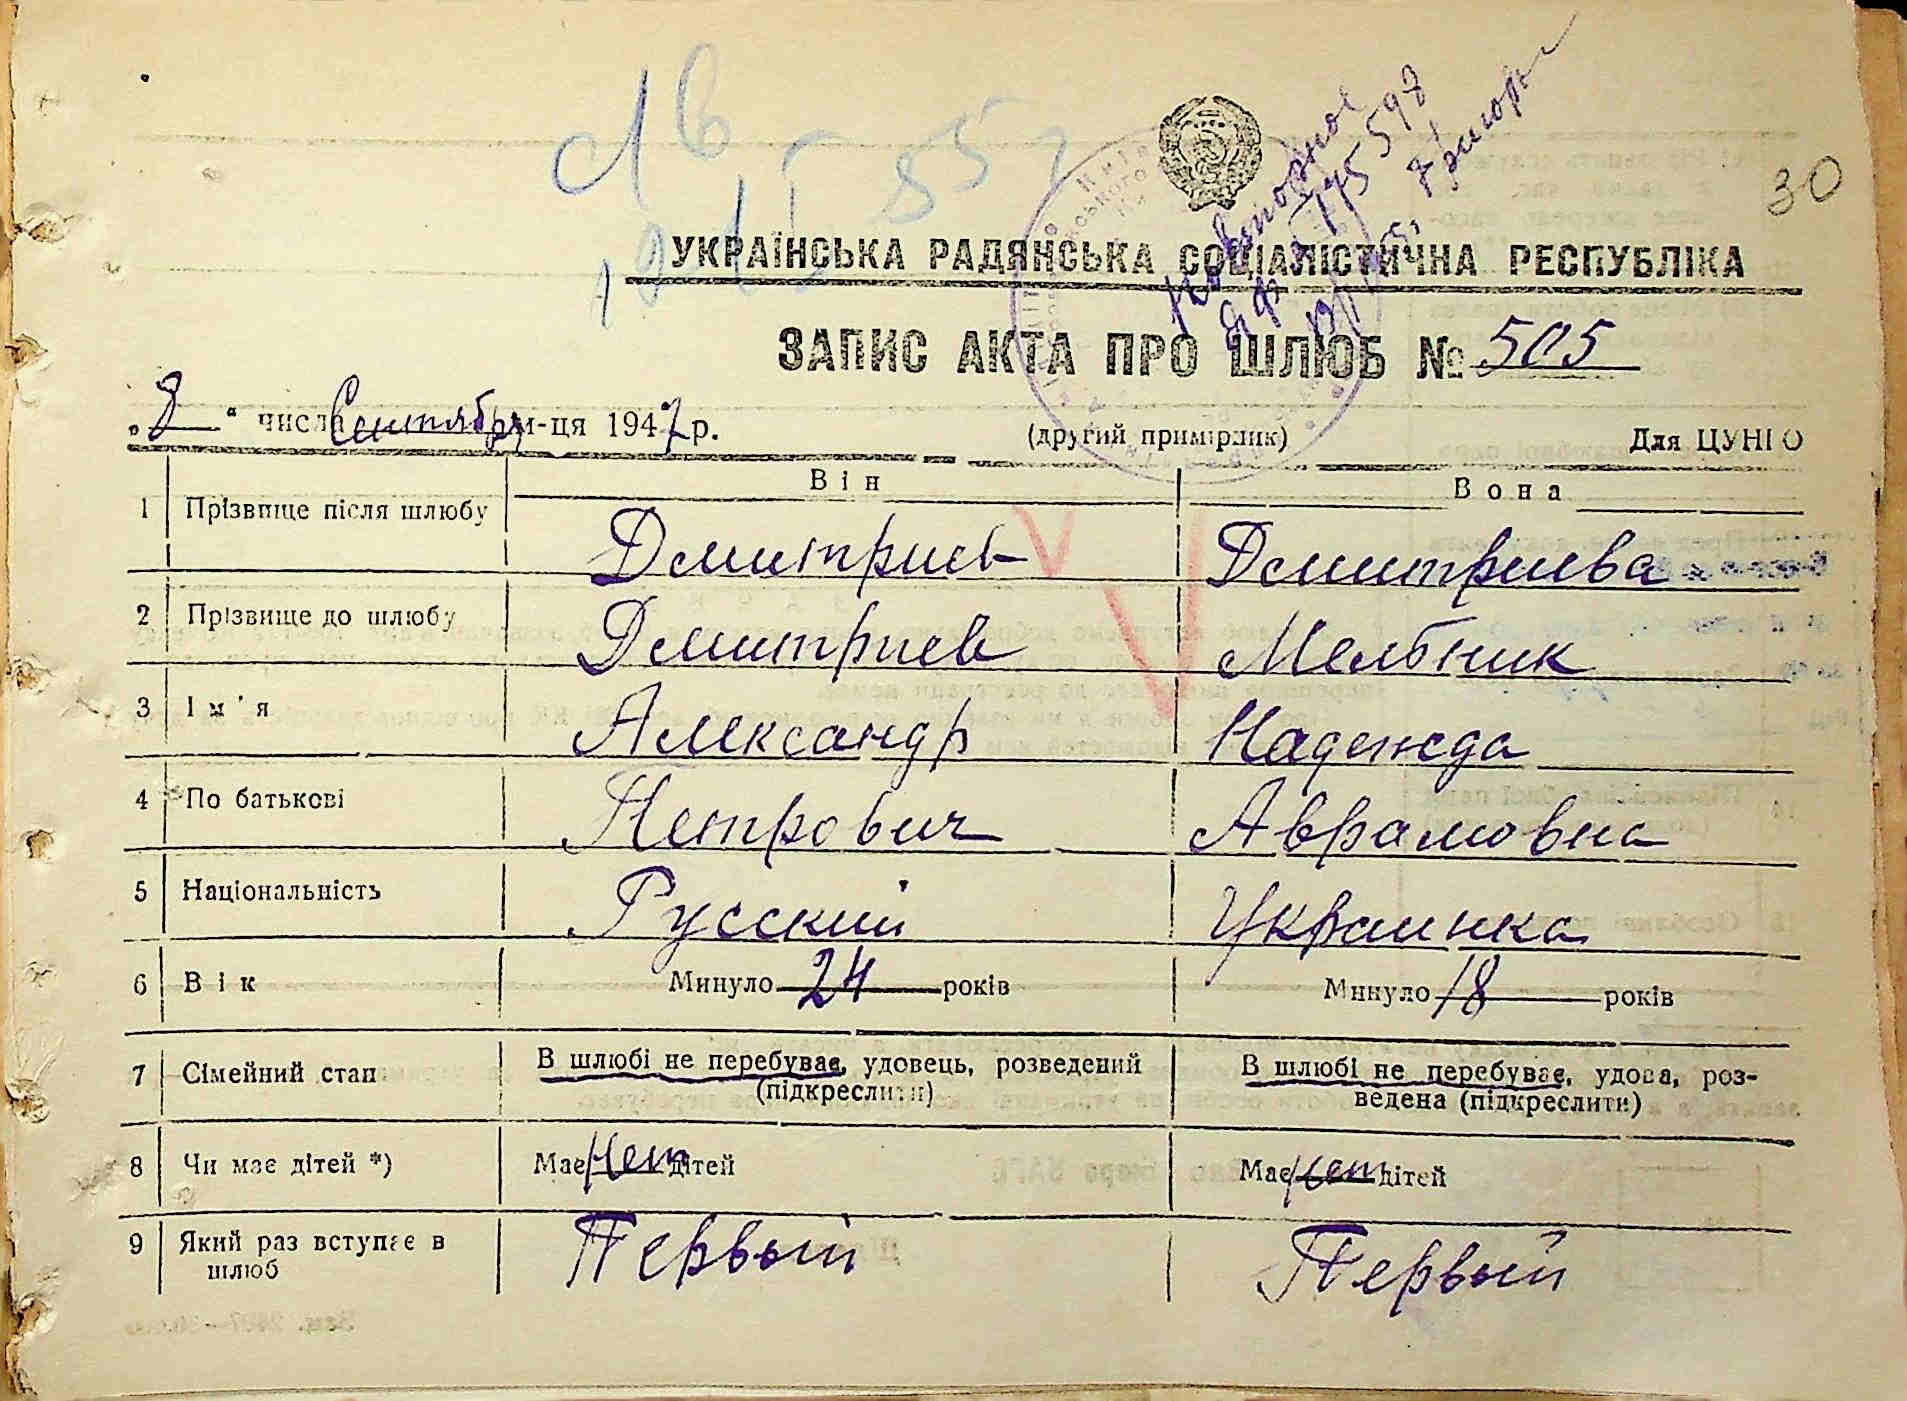 30
Повторное
УКРАЇНСЬКА РАДЯНСЬКА СОЦІАЛІСТИЧНА РЕСПУБЛІКА
ЗАПИС АКТА ПРО ШЛЮБ № 505
„8“ числа Сентября м-ця 1947 р. (другий примірник) Для ЦУНГО
Він Вона
1 Прізвище після шлюбу Дмитриев Дмитриева
2 Прізвище до шлюбу Дмитриев Мельник
3 Ім'я Александр Надежда
4 По батькові Петрович Аврамовна
5 Національність Русский Украинка
6 Вік Минуло 24 років Минуло 18 років
7 Сімейний стан В шлюбі не перебуває, удовець, розведений В шлюбі не перебуває, удова, роз-
(підкреслити) ведена (підкреслити)
8 Чи має дітей *) Має Нет дітей Має Нет дітей
9 Який раз вступає в Первый Первый
шлюб